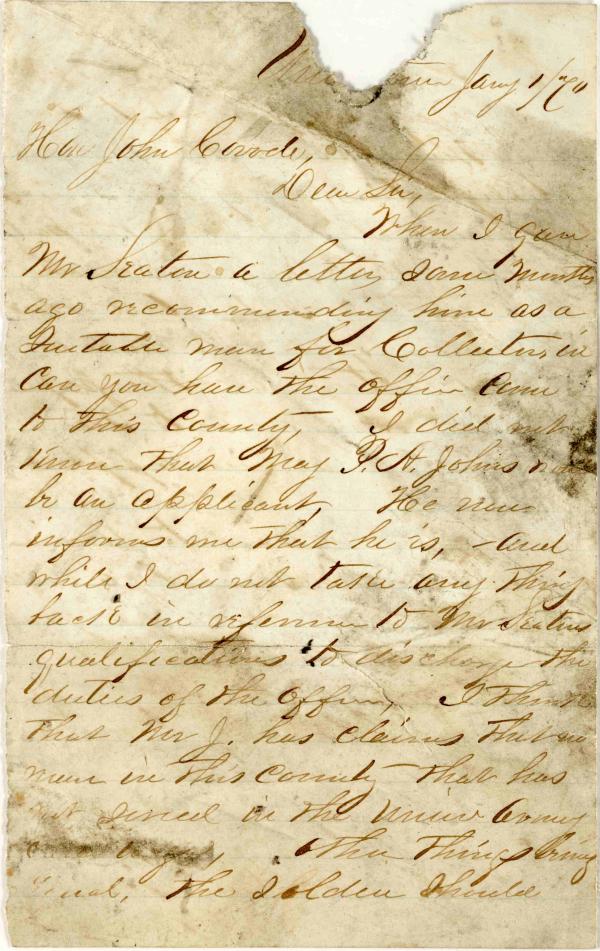 Jany 1/70
Hon John Covode,
Dear Sir,
When I gave
Mr Seaton a letter, some months
ago recommending him as a
Suitable man for Collector, in
Case you have the office come
to this County, I did not
know that Maj P. A. Johns
be an applicant, He now
informs me that he is, - and
while I do not take any thing
back in reference to Mr Seatons
qualifications to discharge the
duties of the office, I think
that Mr J. has claims that no
man in this County that has
not served in the Union Army
other things being
equal, the Soldier Should